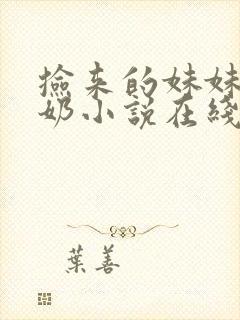 撿来的妹妹
奶小說在綫
葉善